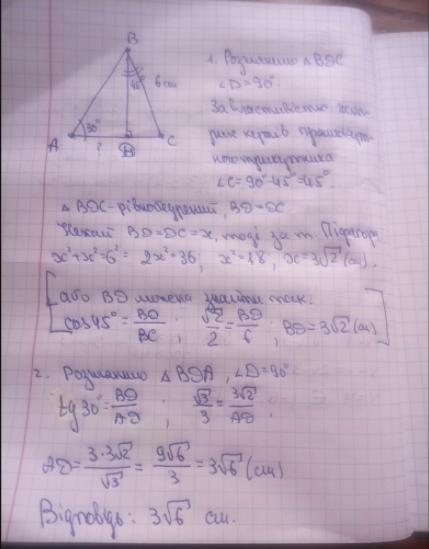 B
45° 6 см
30°
A ? D C
1. Розглянемо △BDC
∠D=90°
За властивістю гост-
рих кутів прямокут-
ного трикутника
∠C=90°-45°=45°.
△ BDC-рівнобедрений, BD=DC
Нехай BD=DC=x, тоді за т. Піфагора
x²+x²=6² = 2x²=36; x²=18, x=3√2 (см).
або BD можна знайти так:
cos45°=BD/BC ; √2/2=BD/6 ; BD=3√2 (см)
2. Розглянемо △ BDA, ∠D=90°
tg30°=BD/AD ; √3/3=3√2/AD;
AD=3·3√2/√3=9√6/3=3√6 (см)
Відповідь: 3√6 см.